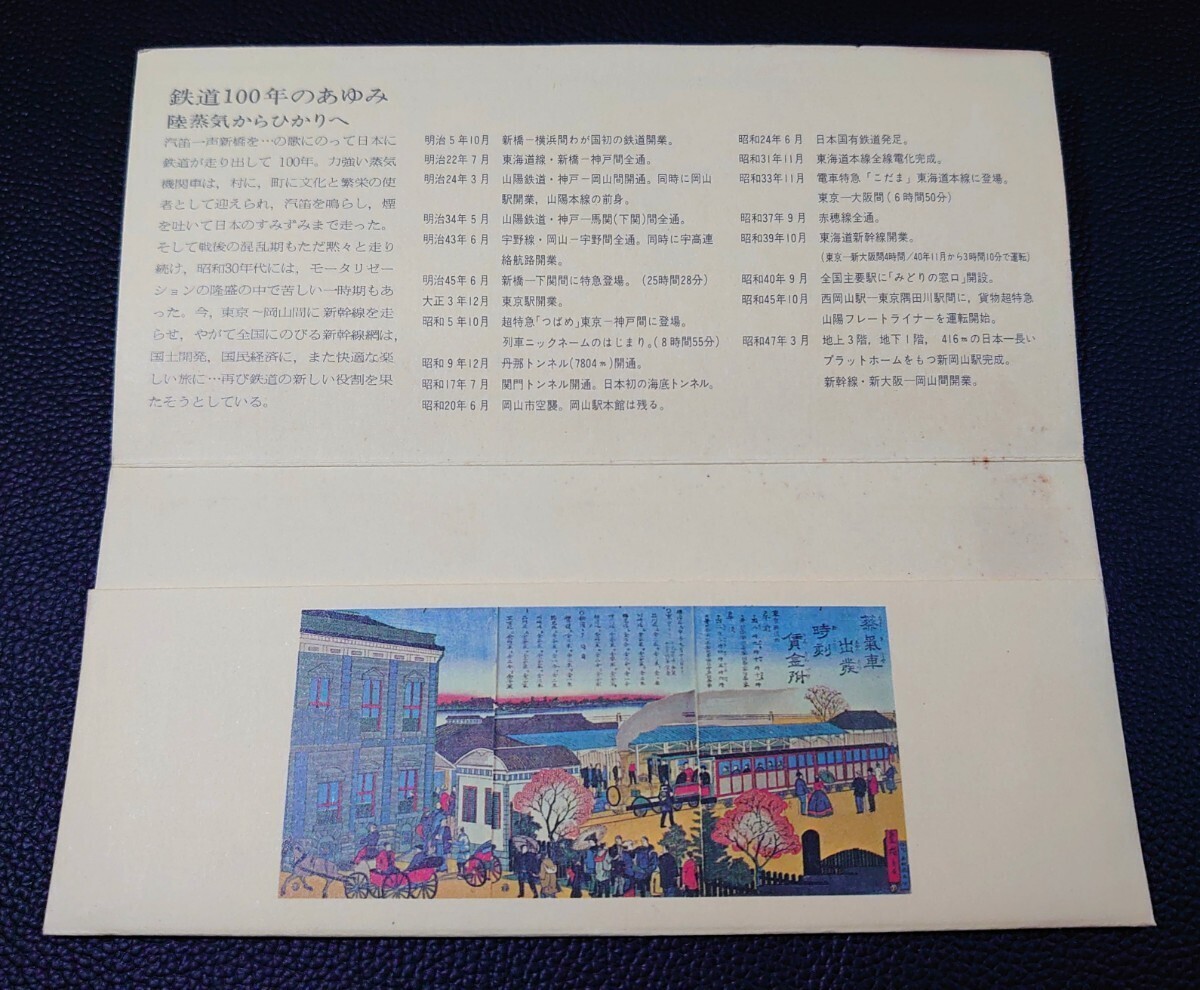 鉄道100年のあゆみ
陸蒸気からひかりへ
汽笛一声新橋を…の歌にのって日本に
鉄道が走り出して 100年。力強い蒸気
機関車は，村に，町に文化と繁栄の使
者として迎えられ，汽笛を鳴らし，煙
を吐いて日本のすみずみまで走った。
そして戦後の混乱期もただ黙々と走り
続け，昭和30年代には，モータリゼー
ションの隆盛の中で苦しい一時期もあ
った。今，東京～岡山間に新幹線を走
らせ，やがて全国にのびる新幹線網は，
国土開発，国民経済に，また快適な楽
しい旅に…再び鉄道の新しい役割を果
たそうとしている。
明治5年10月 新橋－横浜間わが国初の鉄道開業。
明治22年7月 東海道線・新橋－神戸間全通。
明治24年3月 山陽鉄道・神戸－岡山間開通。同時に岡山
駅開業，山陽本線の前身。
明治34年5月 山陽鉄道・神戸―馬関(下関)間全通。
明治43年6月 宇野線・岡山－宇野間全通。同時に宇高連
絡航路開業。
明治45年6月 新橋―下関間に特急登場。(25時間28分)
大正3年12月 東京駅開業。
昭和5年10月 超特急「つばめ」東京－神戸間に登場。
列車ニックネームのはじまり。(8時間55分)
昭和9年12月 丹那トンネル(7804m)開通。
昭和17年7月 関門トンネル開通。日本初の海底トンネル。
昭和20年6月 岡山市空襲。岡山駅本館は残る。
昭和24年6月 日本国有鉄道発足。
昭和31年11月 東海道本線全線電化完成。
昭和33年11月 電車特急「こだま」東海道本線に登場。
東京―大阪間(6時間50分)
昭和37年9月 赤穂線全通。
昭和39年10月 東海道新幹線開業。
(東京―新大阪間4時間／40年11月から3時間10分で運転)
昭和40年9月 全国主要駅に「みどりの窓口」開設。
昭和45年10月 西岡山駅－東京隅田川駅間に，貨物超特急
山陽フレートライナーを運転開始。
昭和47年3月 地上3階，地下1階，416mの日本一長い
プラットホームをもつ新岡山駅完成。
新幹線・新大阪―岡山間開業。
蒸氣車
出発
時刻
賃金附